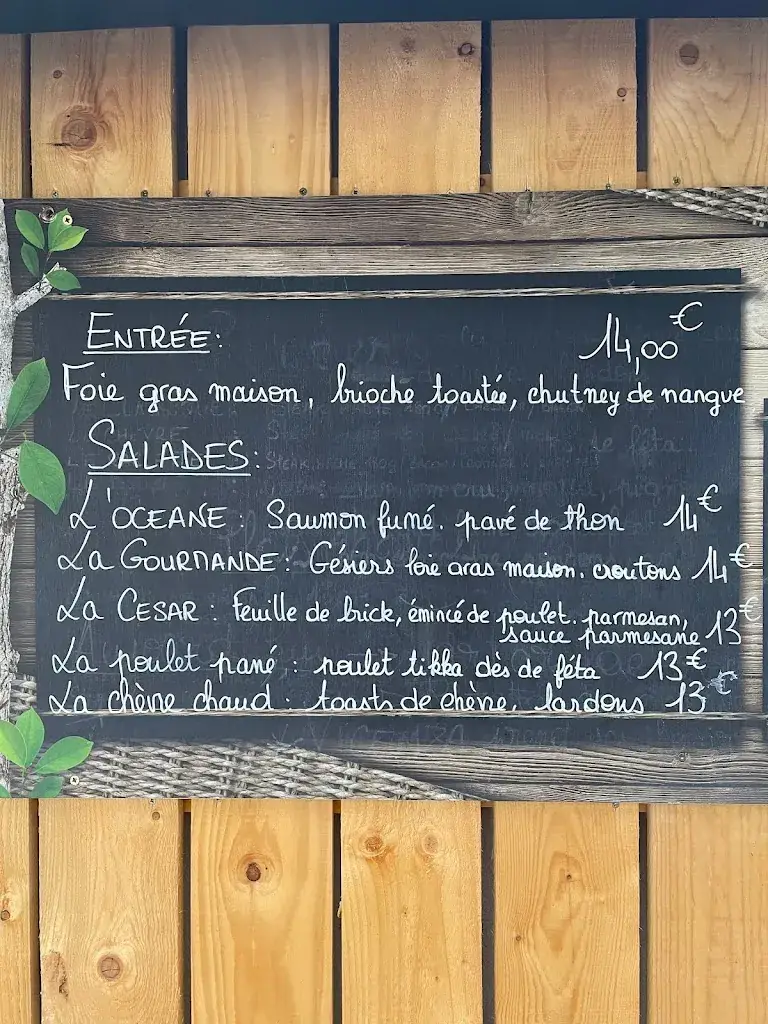 ENTRÉE: 14,00€
Foie gras maison, brioche toastée, chutney de mangue
SALADES:
L'OCEANE: Saumon fumé. pavé de thon 14€
La GOURMANDE: Gésiers foie gras maison. croutons 14€
La CESAR: Feuille de brick, émincé de poulet. parmesan,
sauce parmesane 13€
La poulet pané: poulet tikka dès de féta 13€
La chèvre chaud: toasts de chèvre, lardons 13€